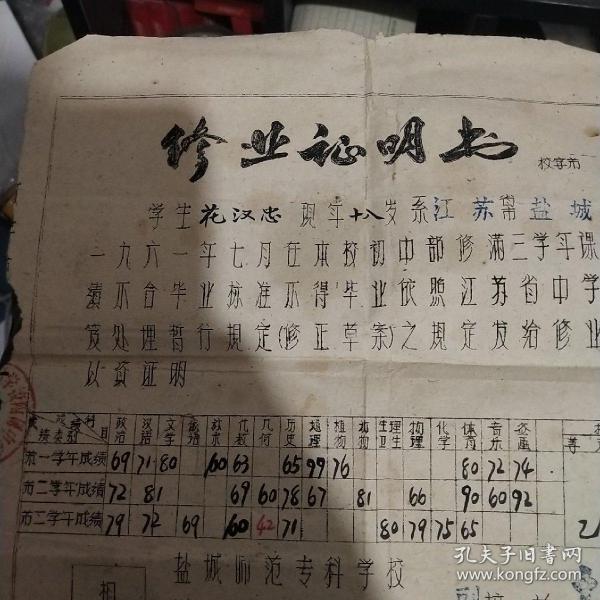 修业证明书
校字第
学生花汉忠现年十八岁系江苏省市盐城
一九六一年七月在本校初中部修满三学年课
绩不合毕业标准不得毕业依照江苏省中学
及处理暂行规定(修正草案)之规定发给修业
以资证明
成绩类别 科目 政治 汉语 文学 俄语 算术 代数 几何 历史 地理 植物 动物 生理卫生 物理 化学 体育 音乐 图画
第一学年成绩 69 71 80 60 63 65 99 76 80 72 74
第二学年成绩 72 81 69 60 78 67 81 66 90 60 92
第三学年成绩 79 72 69 60 42 71 80 79 75 65
盐城师范专科学校
副校
相
孔夫子旧书网
www.kongfz.com